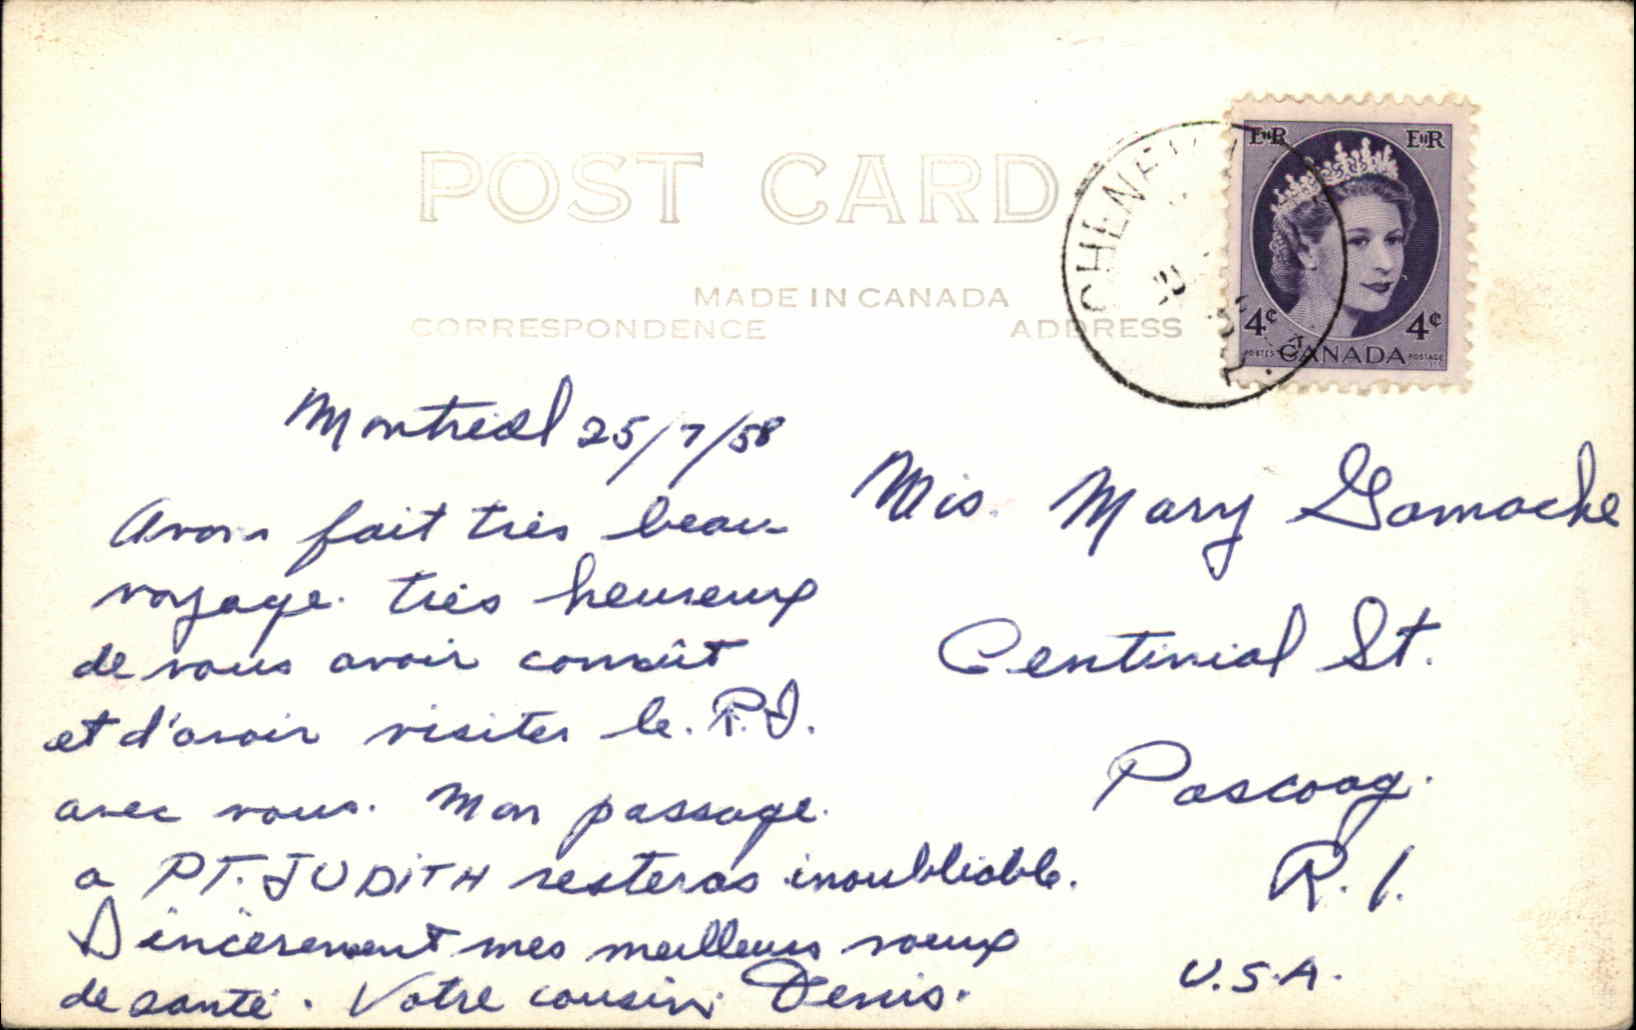 POST CARD
MADE IN CANADA
CORRESPONDENCE
ADDRESS
EIIR EIIR
4¢ 4¢
POSTES CANADA POSTAGE
Montreal 25/7/58
Avons fait très beau
voyage. très heureux
de vous avoir connût
et d'avoir visiter le. R.I.
avec vous. Mon passage.
a PT. JUDITH resteras inoubliable.
Sincèrement mes meilleurs voeux
de santé. Votre cousin Denis.
Mis. Mary Gamache
Centinial St.
Pascoag.
R.I.
U.S.A.